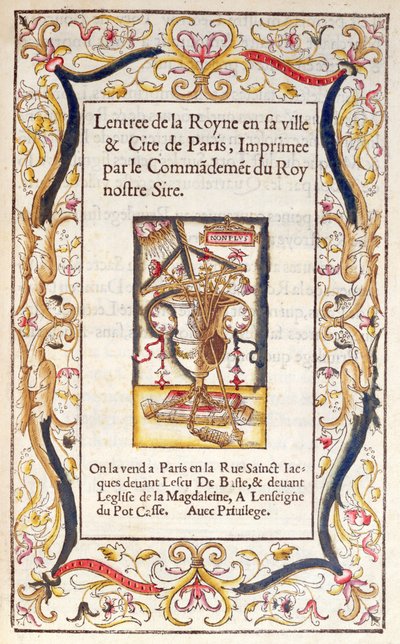 Lentree de la Royne en sa ville
& Cite de Paris, Imprimee
par le Commãdemẽt du Roy
nostre Sire.
NON PLVS
On la vend a Paris en la Rue Sainct Iac-
ques deuant Lescu De Basle, & deuant
Leglise de la Magdaleine, A Lenseigne
du Pot Casse. Auec Priuilege.